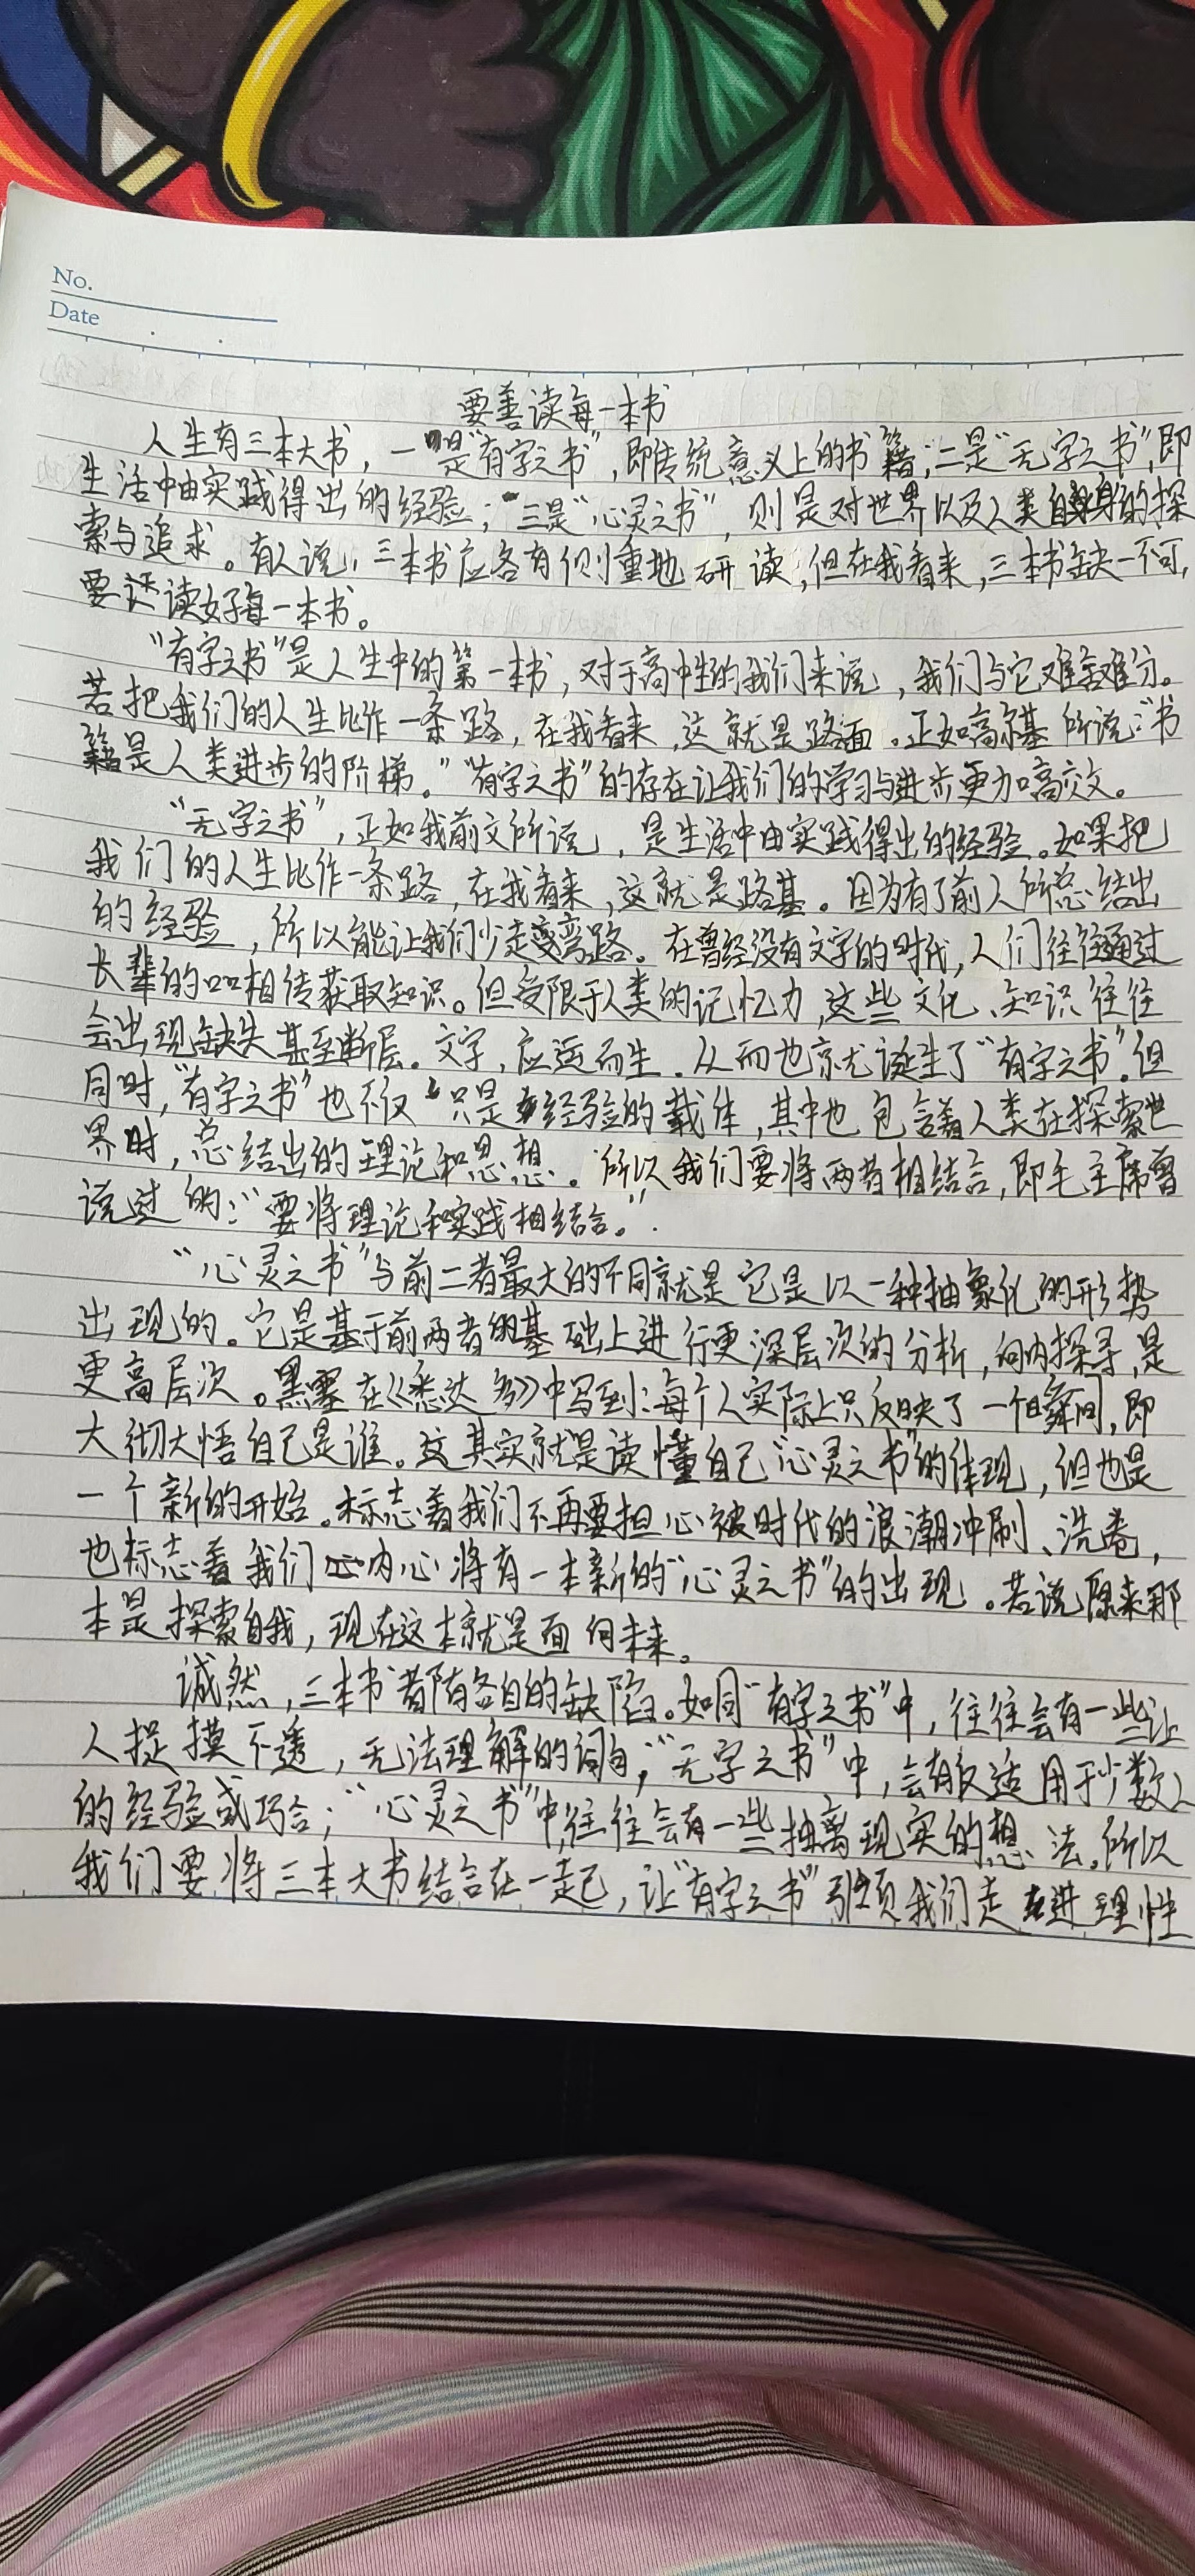 No.
Date
要善读每一本书
人生有三本大书，一是“有字之书”，即传统意义上的书籍；二是“无字之书”，即
生活中由实践得出的经验；三是“心灵之书”，则是对世界以及人类自身的探
索与追求。有人说，三本书应各有侧重地研读，但在我看来，三本书缺一不可，
要读好每一本书。
“有字之书”是人生中的第一本书，对于高中性的我们来说，我们与它难舍难分。
若把我们的人生比作一条路，在我看来，这就是路面。正如高尔基所说：“书
籍是人类进步的阶梯。”“有字之书”的存在让我们的学习与进步更加高效。
“无字之书”，正如我前文所说，是生活中由实践得出的经验。如果把
我们的人生比作一条路，在我看来，这就是路基。因为有了前人所总结出
的经验，所以能让我们少走弯路。在曾经没有文字的时代，人们往往通过
长辈的口口相传获取知识。但受限于人类的记忆力，这些文化、知识往往
会出现缺失甚至断层。文字，应运而生，从而也就诞生了“有字之书”。但
同时，“有字之书”也不仅只是经验的载体，其中也包含着人类在探索世
界时，总结出的理论和思想。所以我们要将两者相结合，即毛主席曾
说过的：“要将理论和实践相结合。”
“心灵之书”与前二者最大的不同就是它是以一种抽象化的形势
出现的。它是基于前两者的基础上进行更深层次的分析，向内探寻，是
更高层次。黑塞在《悉达多》中写到：每个人实际上只反映了一个瞬间，即
大彻大悟自己是谁。这其实就是读懂自己“心灵之书”的体现，但也是
一个新的开始。标志着我们不再要担心被时代的浪潮冲刷、洗卷，
也标志着我们内心将有一本新的“心灵之书”的出现。若说原来那
本是探索自我，现在这本就是面向未来。
诚然，三本书都有各自的缺陷。如同“有字之书”中，往往会有一些让
人捉摸不透，无法理解的词句；“无字之书”中，会有仅适用于少数人
的经验或巧合；“心灵之书”中，往往会有一些抽离现实的想法。所以
我们要将三本大书结合在一起，让“有字之书”引领我们走进理性